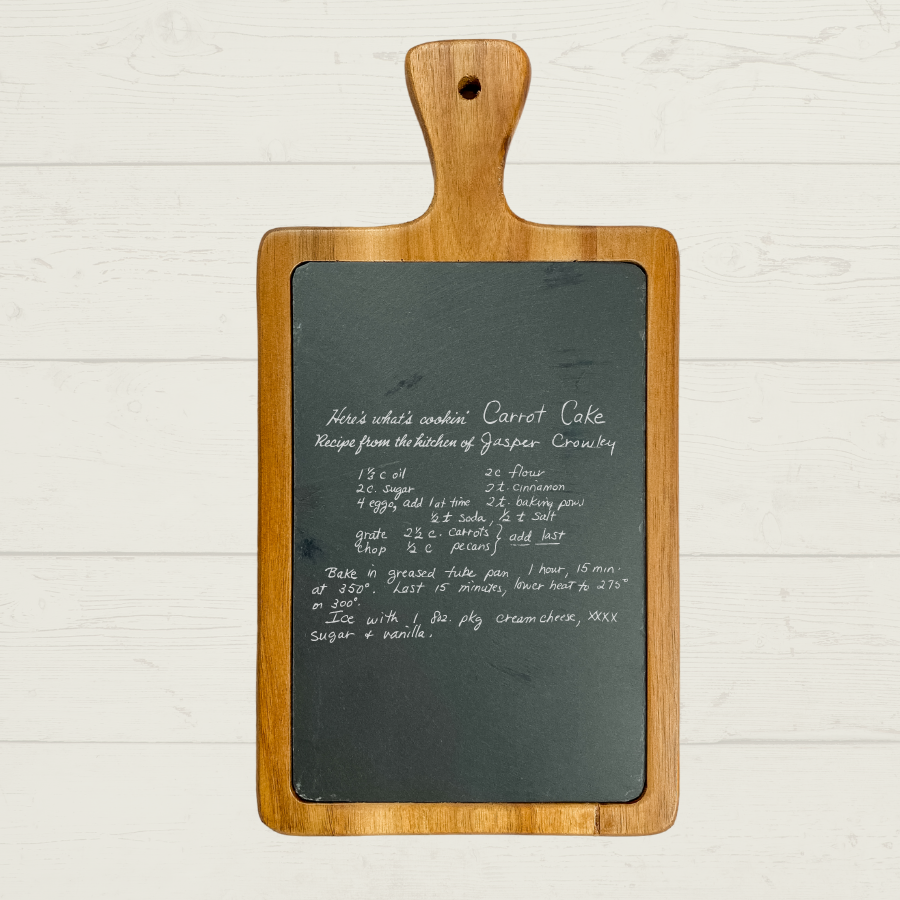 Here's what's cookin' Carrot Cake
Recipe from the kitchen of Jasper Crowley
1⅓ c oil 2c flour
2c. sugar 2 t. cinnamon
4 eggs, add 1 at time 2 t. baking powd
½ t soda, ½ t salt
grate 2½ c. carrots } add last
chop ½ c pecans
Bake in greased tube pan 1 hour, 15 min.
at 350°. Last 15 minutes, lower heat to 275°
or 300°.
Ice with 1 8oz. pkg cream cheese, xxxx
sugar + vanilla.